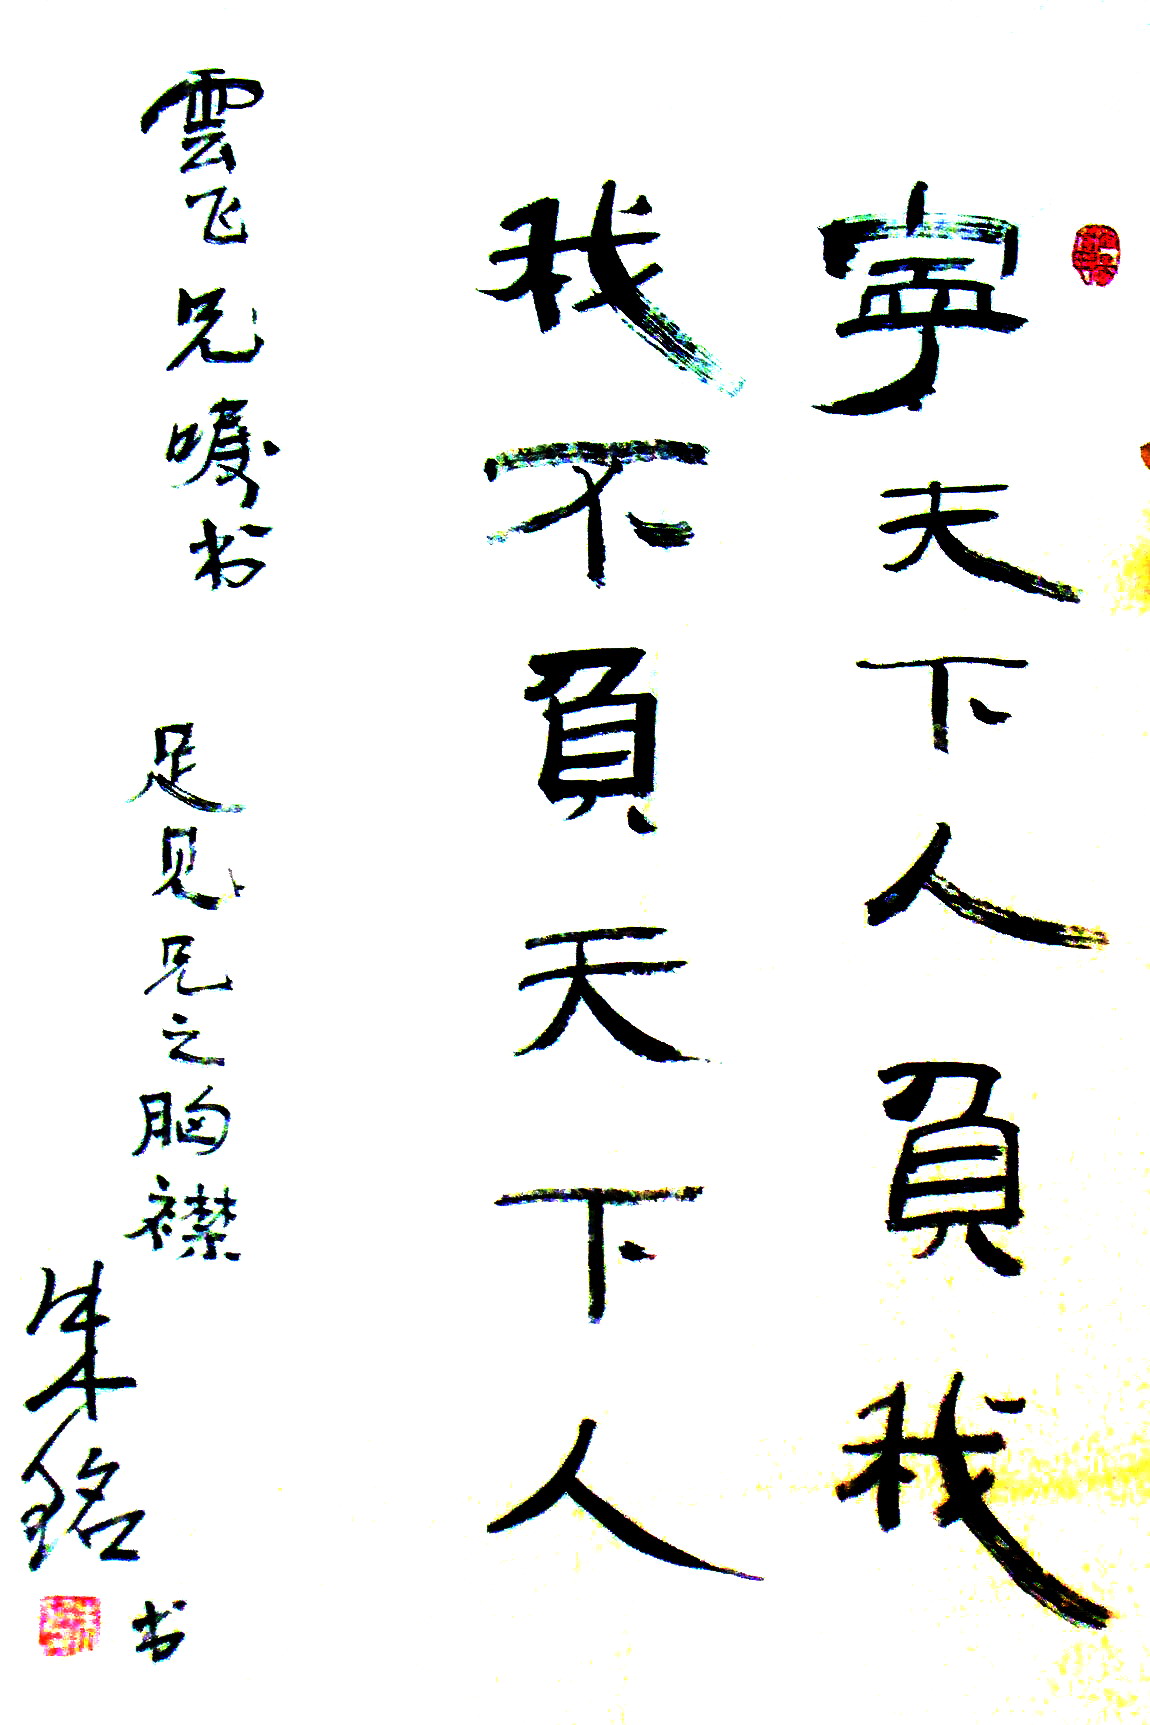 寕天下人負我
我不負天下人
雲飞兄嘱书 足见兄之胸襟
朱銘书